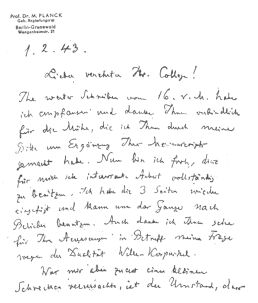 Prof. Dr. M. PLANCK
Geh. Regierungsrat
Berlin-Grunewald
Wangenheimstr. 21
1. 2. 43.
Lieber verehrter Hr. College!
Ihr wertes Schreiben vom 16. v. M. habe
ich empfangen und danke Ihnen verbindlich
für die Mühe, die ich Ihnen durch meine
Bitte um Ergänzung Ihres Manuscripts
gemacht habe. Nun bin ich froh, diese
für mich interessante Arbeit vollständig
zu besitzen. Ich habe die 3 Seiten wieder
eingefügt und kann nun das Ganze nach
Belieben benutzen. Auch danke ich Ihnen sehr
für Ihre Äusserungen in Betreff meiner Frage
wegen der Dualität Welle-Korpuskel.
Was mir aber zuerst einen kleinen
Schrecken verursachte, ist der Umstand, dass